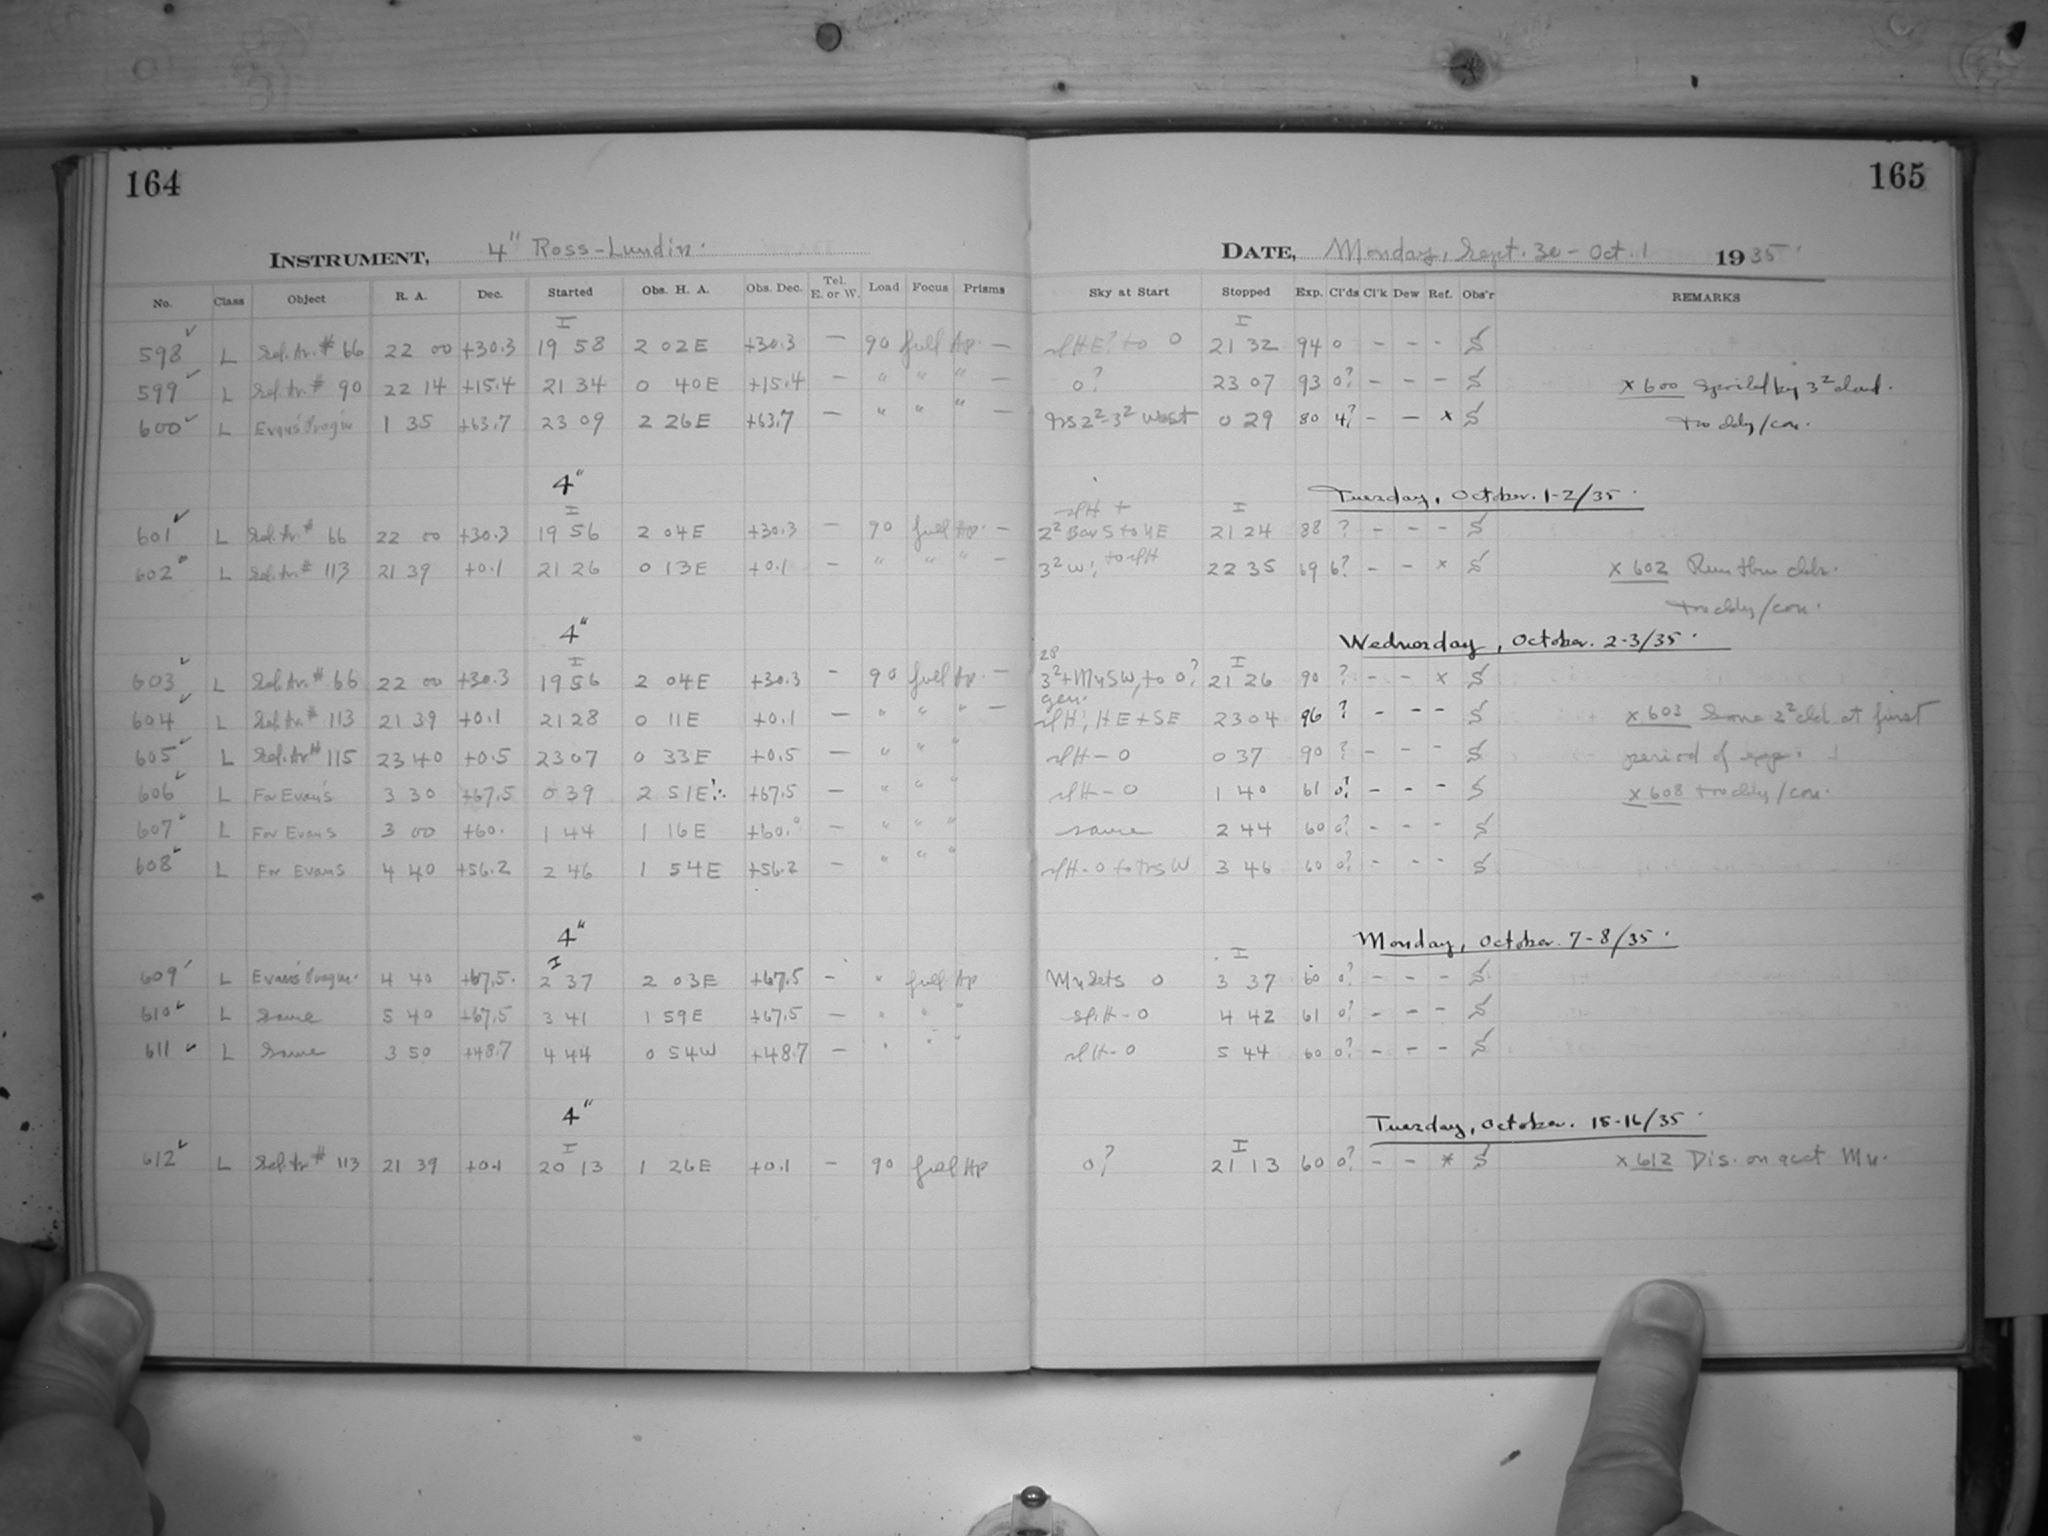 164
165
INSTRUMENT, 4" Ross-Lundin.
DATE, Monday, Sept. 30 - Oct. 1 1935
No. Class Object R. A. Dec. Started Obs. H. A. Obs. Dec. Tel. E. or W. Load Focus Prisms Sky at Start Stopped Exp. Cl'ds Cl'k Dew Ref. Obs'r REMARKS
I I
598 L Sel. Ar. # 66 22 00 +30.3 19 58 2 02E +30.3 — 90 full Ap. — to 0 21 32 94 0 - - - S
599 L Sel. Ar. # 90 22 14 +15.4 21 34 0 40E +15.4 — " " " — 0? 23 07 93 0? - - - S x 600 Spoiled by 3² cloud.
600 L 1 35 +63.7 23 09 2 26E +63.7 — " " " — 2²-3² West 0 29 80 4? - - x S
4" Tuesday, October. 1-2/35.
I I
601 L Sel. Ar. # 66 22 00 +30.3 19 56 2 04E +30.3 — 90 full Ap. — 2² Bar S to NE 21 24 88 ? - - - S
602 L Sel. Ar. # 113 21 39 +0.1 21 26 0 13E +0.1 — " " " — 3² W; 22 35 69 6? - - x S x 602 Run thru clds.
4" Wednesday, October. 2-3/35.
I I
603 L Sel. Ar. # 66 22 00 +30.3 19 56 2 04E +30.3 - 90 full Ap. — 3² + Mn SW, to 0? 21 26 90 ? - - x S
604 L Sel. Ar. # 113 21 39 +0.1 21 28 0 11E +0.1 — " " " — HE + SE 23 04 96 ? - - - S x 603 Some 2² cld. at first
605 L Sel. Ar. # 115 23 40 +0.5 23 07 0 33E +0.5 — " " " - 0 0 37 90 ? - - - S period of
606 L For Evans 3 30 +67.5 0 39 2 51E +67.5 — " " " - 0 1 40 61 0? - - - S x 608
607 L For Evans 3 00 +60. 1 44 1 16E +60.0 — " " " same 2 44 60 0? - - - S
608 L For Evans 4 40 +56.2 2 46 1 54E +56.2 — " " " 3 46 60 0? - - - S
4" Monday, October. 7-8/35.
I I
609 L 4 40 +67.5. 2 37 2 03E +67.5 — " full Ap Mn Sets 0 3 37 60 0? - - - S
610 L Same 5 40 +67.5 3 41 1 59E +67.5 — " " " - 0 4 42 61 0? - - - S
611 L Same 3 50 +48.7 4 44 0 54W +48.7 — " " " - 0 5 44 60 0? - - - S
4" Tuesday, October. 15-16/35.
I I
612 L Sel. Ar # 113 21 39 +0.1 20 13 1 26E +0.1 - 90 full Ap 0? 21 13 60 0? - - * S x 612 Dis. on acct Mn.